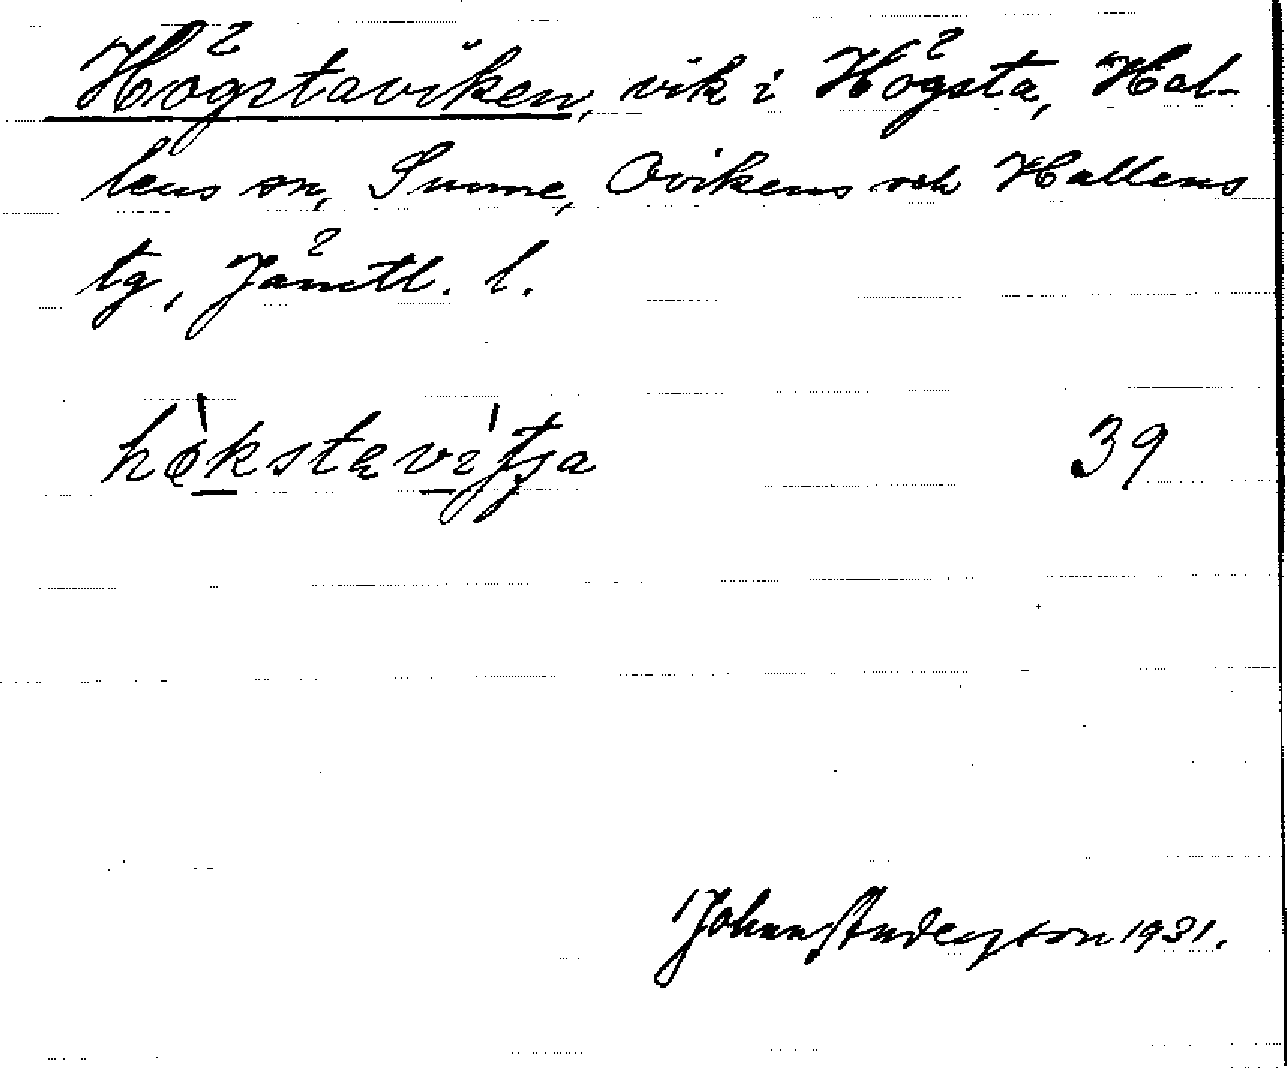 Högstaviken, vik i Högsta, Hal-
lens sn, Sunne, Ovikens och Hallens
tg, Jämtl. l.
39
Johan Anderson 1931.